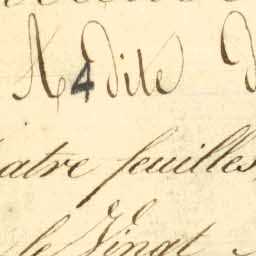 4 dite
atre feuilles
le Vingt